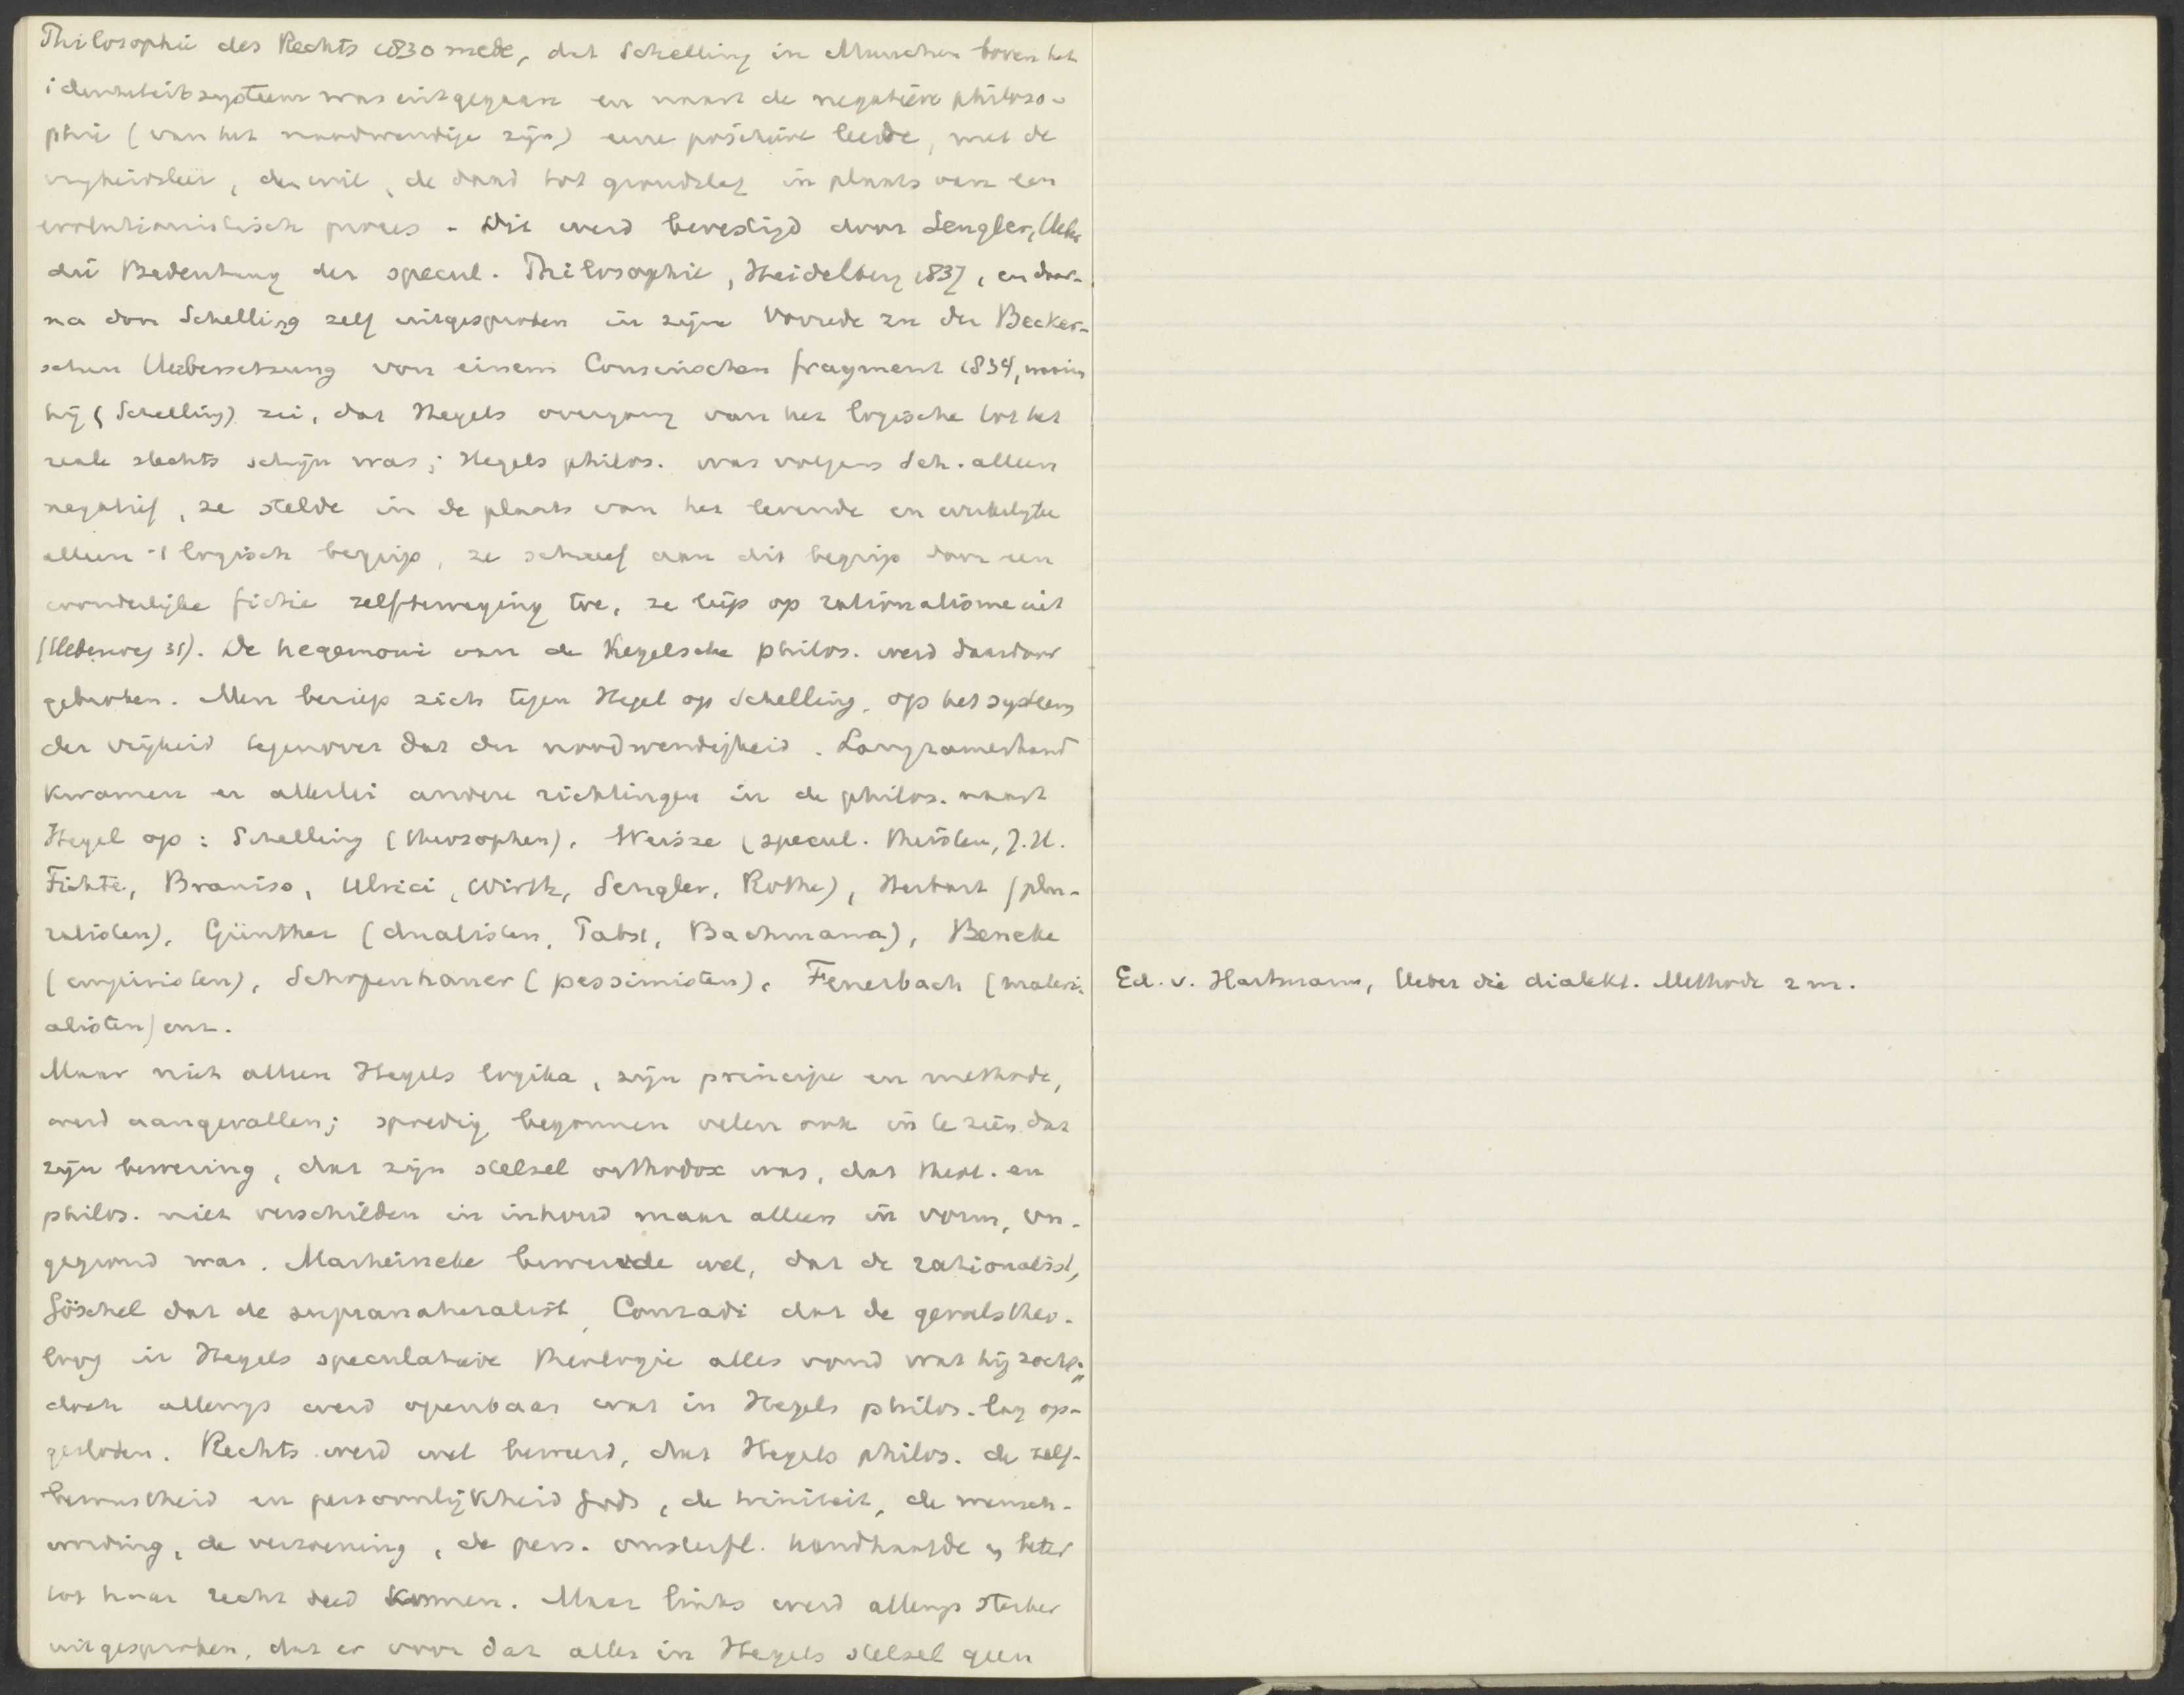 Philosophie des Rechts 1830 mede, dat Schelling in Munchen boven het
identiteitssysteem was uitgegaan en naast de negatieve philoso-
phie (van het noodwendige zijn) eene positieve leerde, met de
vrijheidsleer, de wil, de daad tot grondslag in plaats van een
evolutionistisch proces - Dit werd bevestigd door Sengler, Ueber
die Bedeutung der specul. Philosophie, Heidelberg 1837, en daar-
na door Schelling zelf uitgesproken in zijne Vorrede zu der Becker-
schen Uebersetzung von einem Cousinschen fragment 1834, waarin
hij (Schelling) zei, dat Hegels overgang van het logische tot het
reale slechts schijn was; Hegels philos. was volgens Sch. alleen
negatief, ze stelde in de plaats van het levende en werkelijke
alleen 't logisch begrip, ze schreef aan dit begrip door een
wonderlijke fictie zelfbeweging toe, ze liep op rationalisme uit
(Ueberweg 31). De hegemonie van de Hegelsche philos. werd daardoor
gebroken. Men beriep zich tegen Hegel op Schelling, op het systeem
der vrijheid tegenover dat der noodwendigheid. Langzamerhand
kwamen er allerlei andere richtingen in de philos. naast
Hegel op: Schelling (theosophen), Weisse (specul. theisten, J.H.
Fichte, Braniss, Ulrici, Wirth, Sengler, Rothe), Herbart (plu-
ralisten), Günther (dualisten, Pabst, Bachmann), Beneke
(empiristen), Schopenhauer (pessimisten), Feuerbach (materi-
alisten) enz.
Maar niet alleen Hegels logika, zijn principe en methode,
werd aangevallen; spoedig begonnen velen ook in te zien dat
zijn bewering, dat zijn stelsel orthodox was, dat theol. en
philos. niet verschilden in inhoud maar alleen in vorm, on-
gegrond was. Marheineke beweerde wel, dat de rationalist,
Göschel dat de supranaturalist, Conradi dat de gevoelstheo-
loog in Hegels speculatieve theologie alles vond wat hij zocht;
doch allengs werd openbaar wat in Hegels philos. lag op-
gesloten. Rechts werd wel beweerd, dat Hegels philos. de zelf-
bewustheid en persoonlijkheid Gods, de triniteit, de mensch-
wording, de verzoening, de pers. onsterfl. handhaafde en beter
tot haar recht deed komen. Maar links werd allengs sterker
uitgesproken, dat er voor dat alles in Hegels stelsel geen
Ed. v. Hartmann, Ueber die dialekt. Methode 2 m.